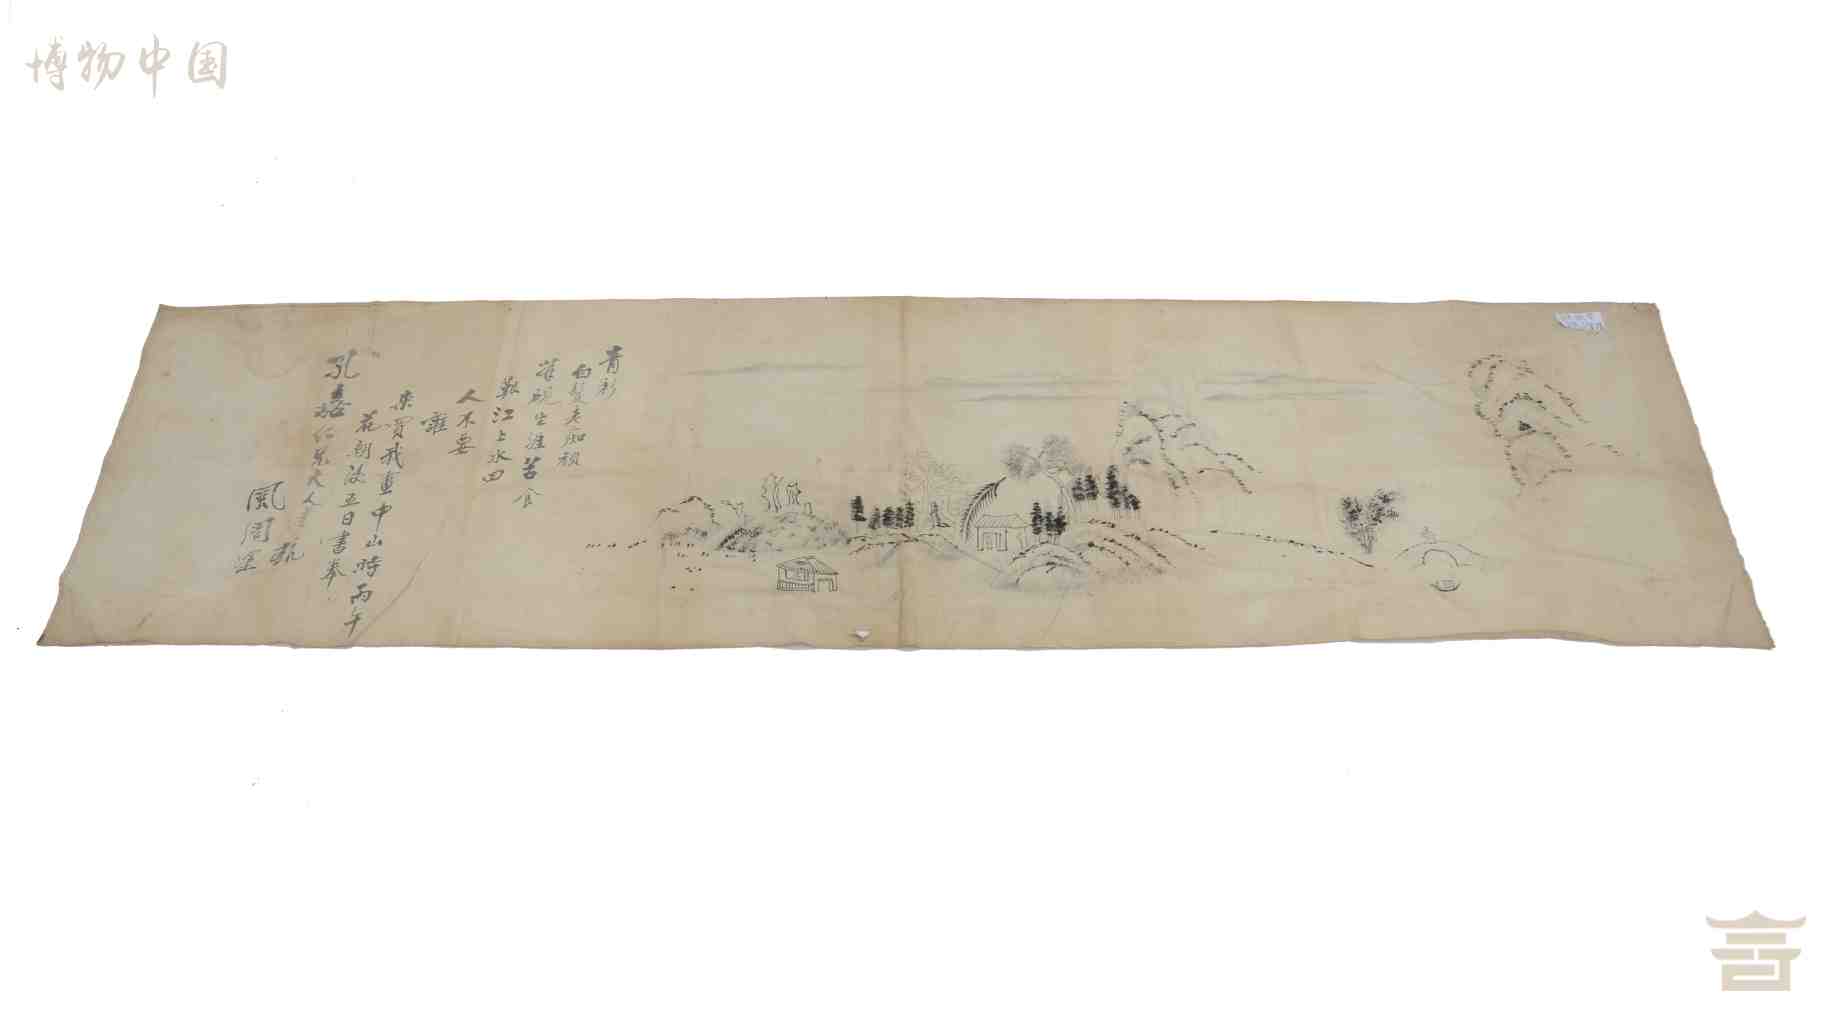 博物中国
青衫
白髮老痴頑
筆硯生涯苦食
艱江上水田
人不要
誰
來買我畫中山時丙午
花朝後五日書奉
孔嘉仁兄大人
鳳周